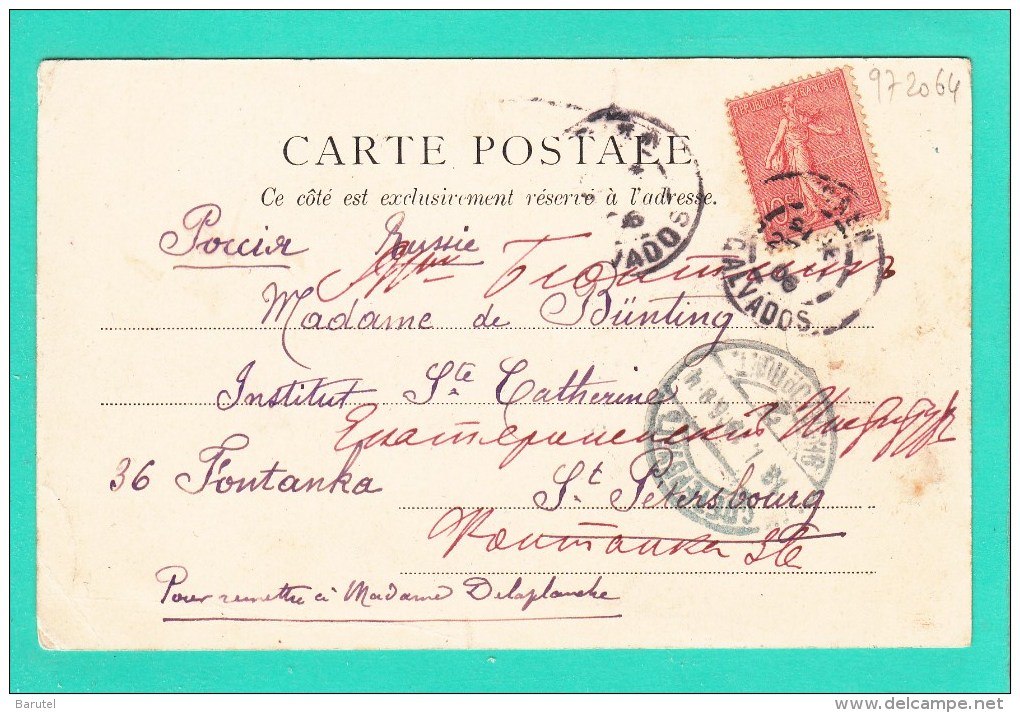 972064
REPUBLIQUE FRANÇAISE
CARTE POSTALE
Ce côté est exclusivement réservé à l'adresse.
CAEN
CALVADOS
VADOS
Россія Russie
Madame de Bünting
Institut Ste Catherine
Екатерининскій
36 Fontanka
St Petersbourg
Фонтанка 36
Pour remettre à Madame Delaplanche
Barutel
delcampe.net